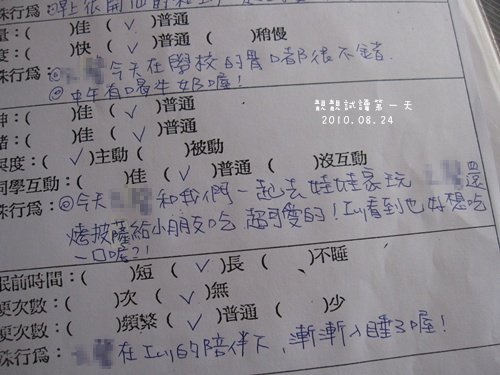 殊行為：◎睜上很開心的和
量：(　)佳 (✓)普通
度：(　)快 (✓)普通 (　)稍慢
殊行為：◎今天在學校的胃口都很不錯.
◎中午有喝牛奶喔！
靚靚試讀第一天
2010.08.24
神：(　)佳 (✓)普通
緒：(　)佳 (✓)普通
與度：(✓)主動 (　)被動
同學互動：(　)佳 (✓)普通 (　)沒互動
殊行為：◎今天 和我們一起去娃娃家玩 還
烤披薩給小朋友吃 超可愛的！Ivy看到也好想吃
一口喔？！
眠前時間：(　)短 (✓)長 (　)不睡
便次數：(　)次 (✓)無
便次數：(　)頻繁 (✓)普通 (　)少
殊行為： 在Ivy的陪伴下、漸漸入睡了喔！